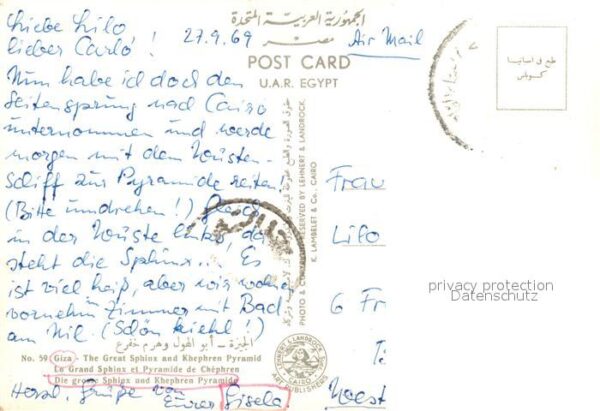 Liebe Lilo
lieber Carlo! 27.9.69
Nun habe ich doch den
Seitensprung nach Cairo
unternommen und werde
morgen mit dem Wüsten-
schiff zur Pyramide reiten!
(Bitte umdrehen!) Gleich
in der Wüste links, da
steht die Sphinx... Es
ist viel heiß, aber wir wohnen
vornehm Zimmer mit Bad
am Nil. (Schön kiehl!)
الجيزة - أبو الهول وهرم خفرع
No. 59 Giza - The Great Sphinx and Khephren Pyramid
Le Grand Sphinx et Pyramide de Chéphren
Die grosse Sphinx und Khephren Pyramide
Herzl. Grüße von
Eurer Gisela
الجمهورية العربية المتحدة
مصر
Air Mail
POST CARD
U.A.R. EGYPT
PHOTO & COPYRIGHT RESERVED BY LEHNERT & LANDROCK
K. LAMBELET & Co., CAIRO
LEHNERT & LANDROCK
CAIRO
ART PUBLISHERS
طبع في اسبانيا
Frau
Lilo
privacy protection
Datenschutz
6 Fr